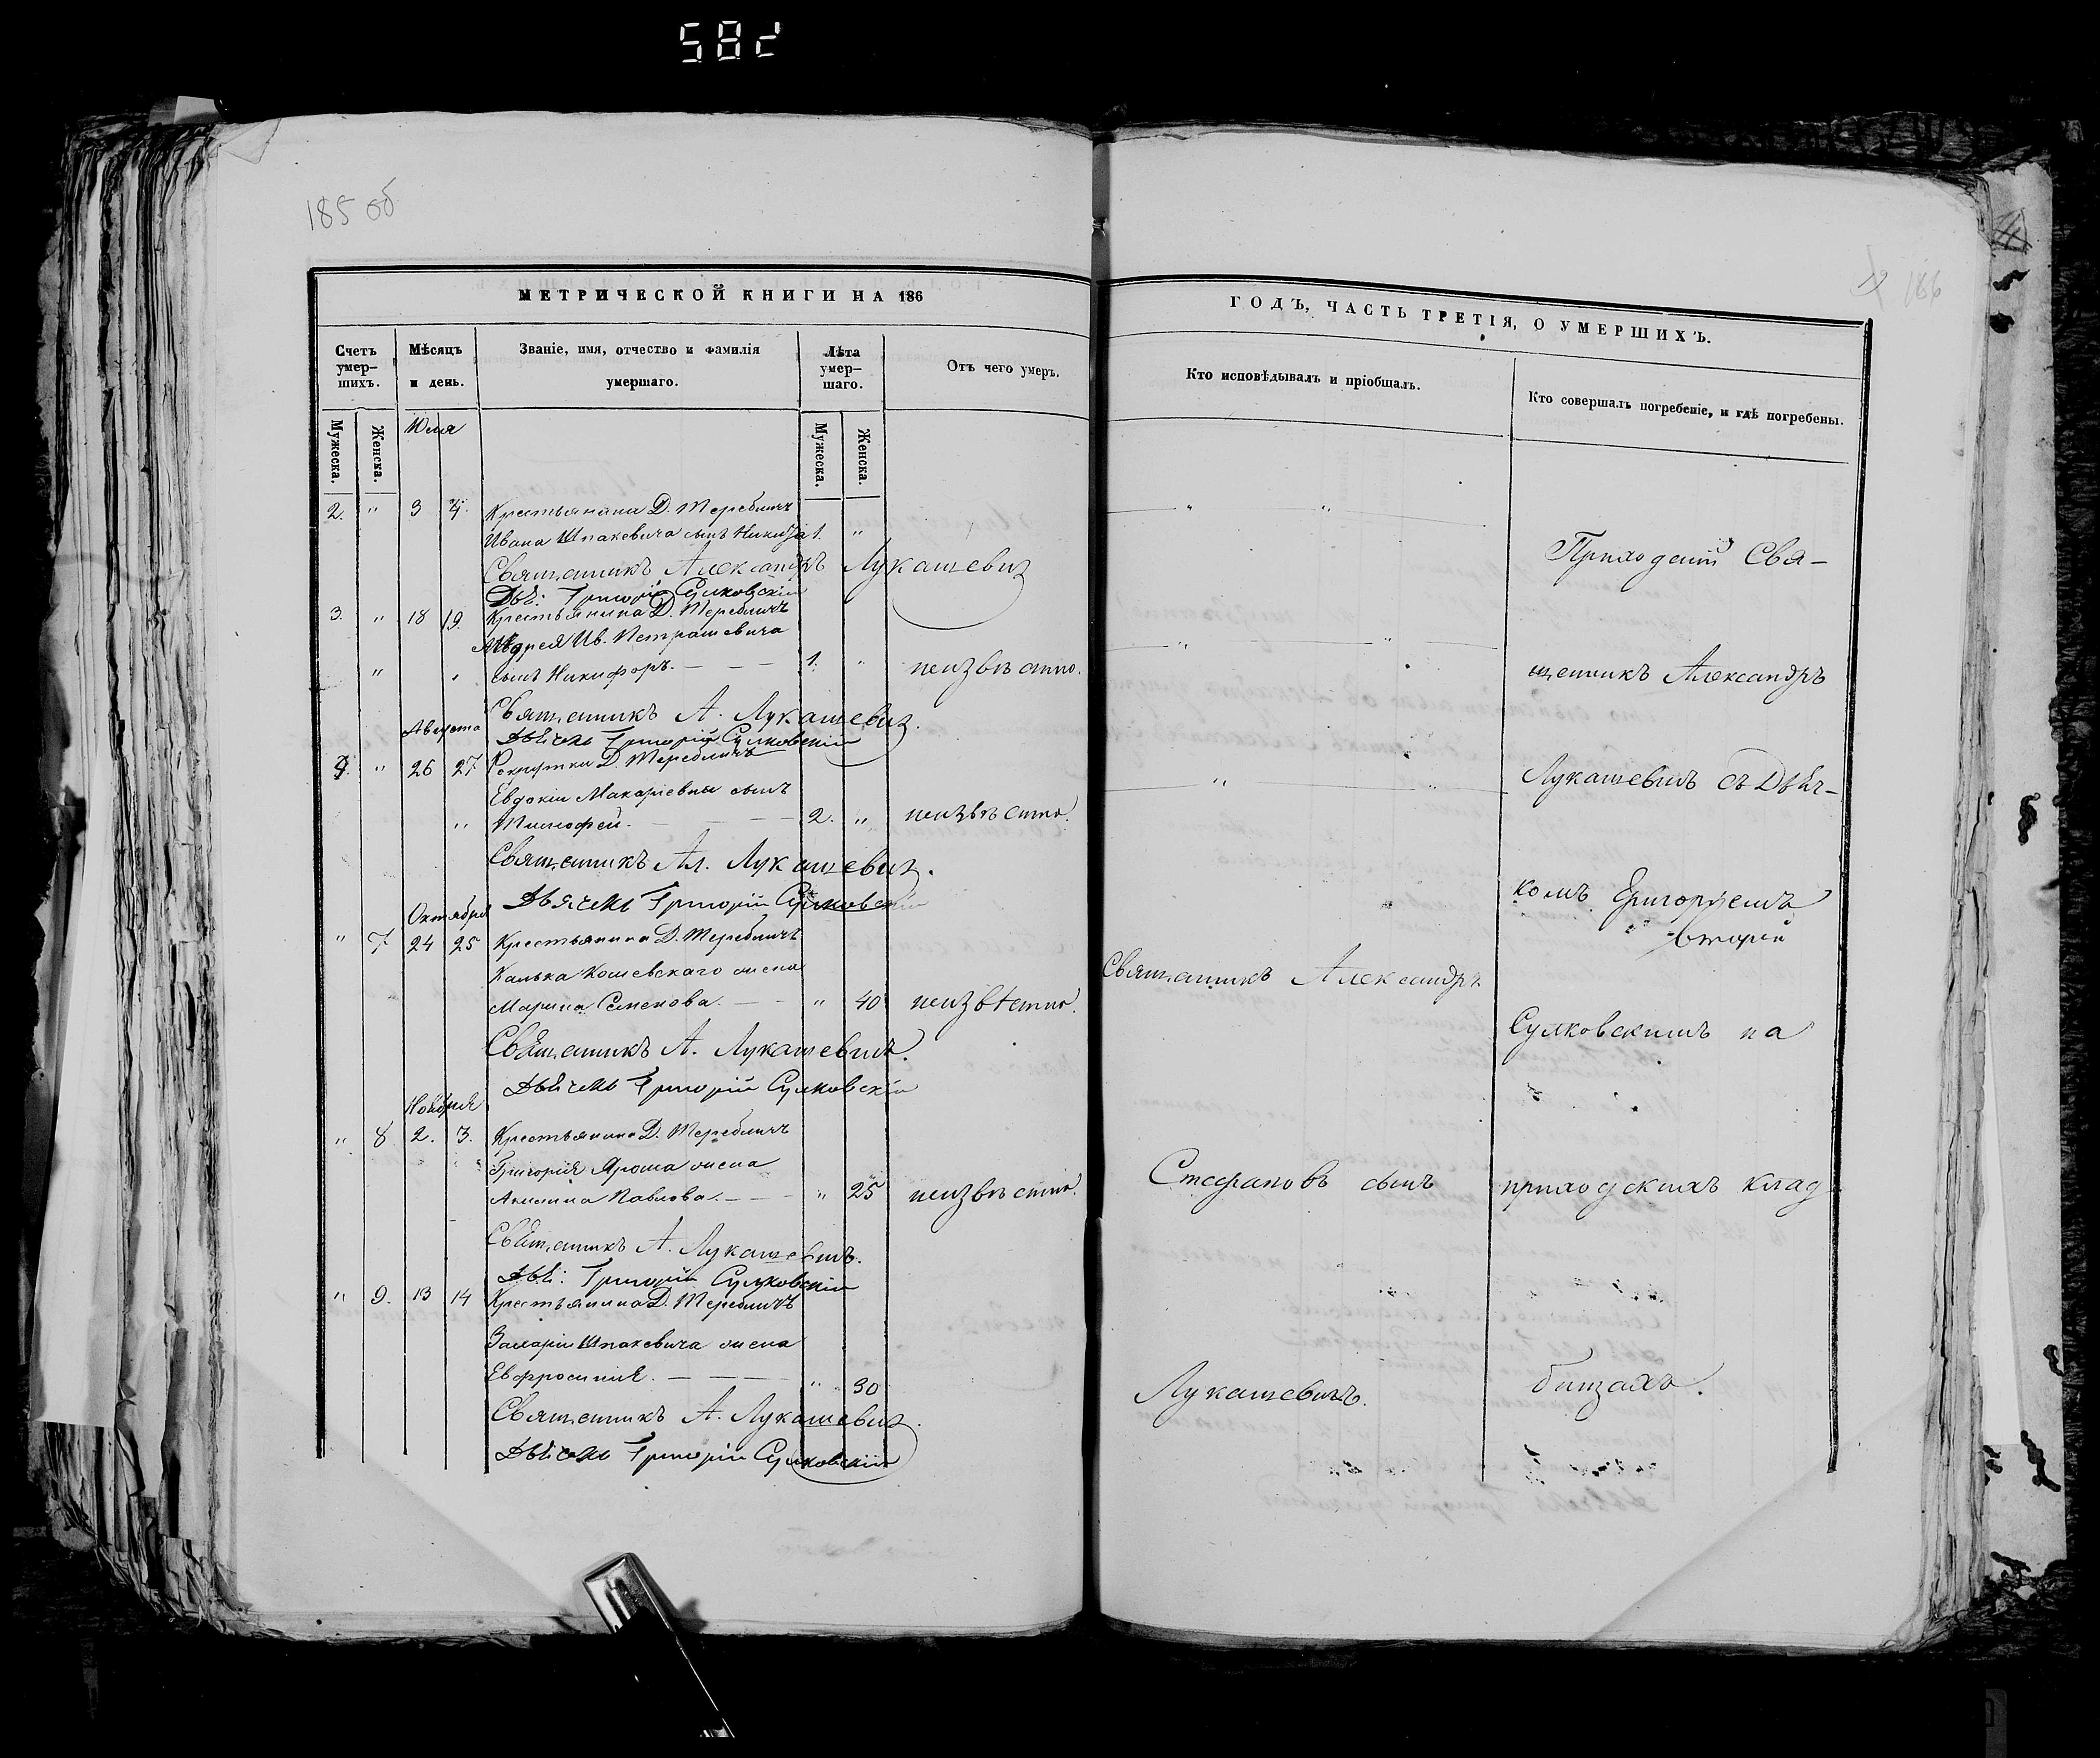 582
185 об
186
МЕТРИЧЕСКОЙ КНИГИ НА 186
Счетъ умер-
шихъ.
Мѣсяцъ
и день.
Званіе, имя, отчество и фамилія
умершаго.
Лѣта
умер-
шаго.
Отъ чего умеръ.
Мужеска.
Женска.
Мужеска.
Женска.
Юля
2. " 3 4. Крестьянина Д. Теребличъ
Ивана Шпакевича сынъ Никита 1. "
Священникъ Александръ Лукашевич
Дья: Григорій Сулковскій
3. " 18 19. Крестьянина Д. Теребличъ
Андрея Ив. Петрашевича
" " сынъ Никифоръ. 1. " неизвѣстно.
Священникъ А. Лукашевич.
Августа
Дьячекъ Григорій Сулковскій
4. " 26 27 Рекрутки Д. Теребличъ
Евдокіи Макаріевны сынъ
" Тимофей. 2. " неизвѣстно.
Священникъ Ал. Лукашевич.
Дьячекъ Григорій Сулковскій
Октября
" 7 24 25 Крестьянина Д. Теребличъ
Кошевскаго жена
Марина Семенова. " 40 неизвѣстно.
Священникъ А. Лукашевичъ.
Дьячекъ Григорій Сулковскій
Ноября
" 8 2. 3. Крестьянина Д. Теребличъ
Григорія Яроша жена
Акилина Павлова. " 25 неизвѣстно.
Священникъ А. Лукашевичъ.
Дья: Григорій Сулковскій
" 9. 13 14 Крестьянина Д. Теребличъ
Захарія Шпакевича жена
Евфросинія. " 30
Священникъ А. Лукашевич.
Дьячекъ Григорій Сулковскій
ГОДЪ, ЧАСТЬ ТРЕТІЯ, О УМЕРШИХЪ.
Кто исповѣдывалъ и пріобщалъ.
Кто совершалъ погребеніе, и гдѣ погребены.
Священникъ Александръ
Стефановъ сынъ
Лукашевичъ.
Приходскій Свя-
щенникъ Александръ
Лукашевичъ съ Дьяч-
комъ Григоріемъ
Сулковскимъ на
приходскихъ клад
бищахъ.